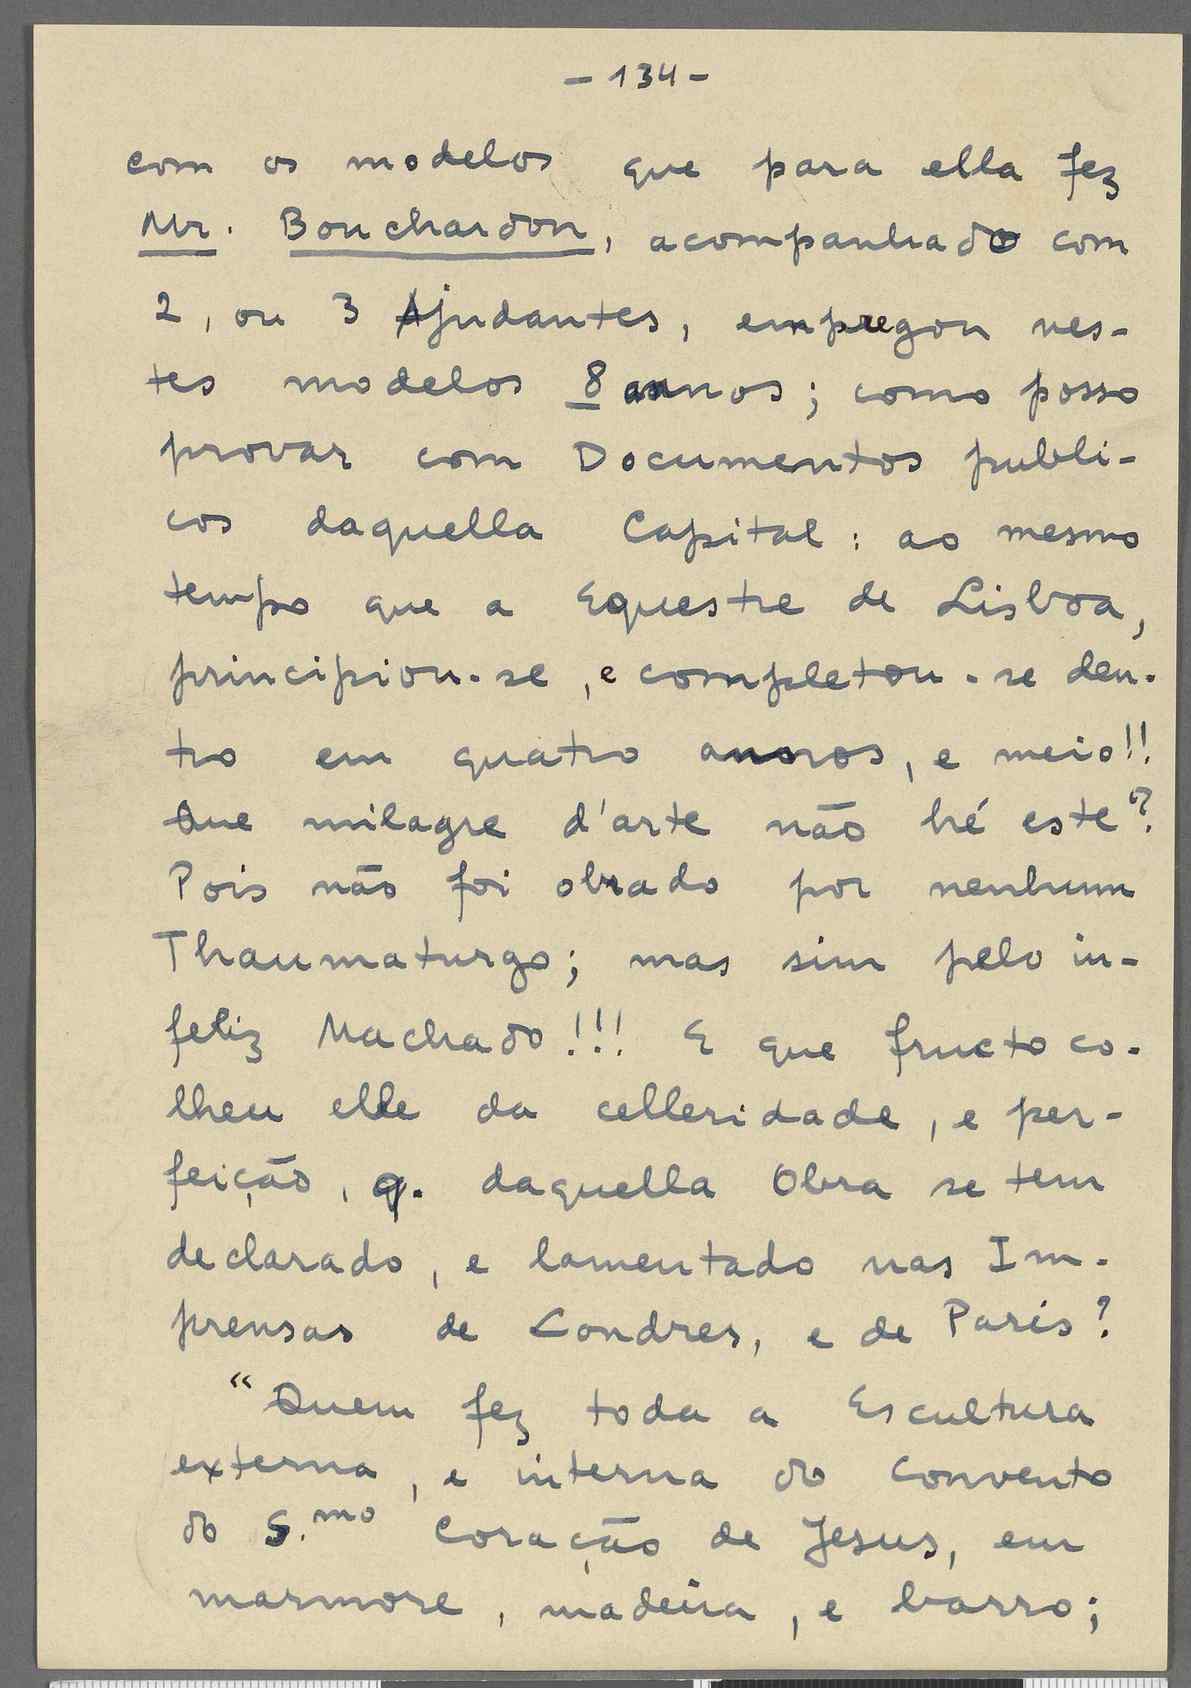 - 134 -
com os modelos que para ella fez
Mr. Bouchardon, acompanhado com
2, ou 3 Ajudantes, empregou nes-
tes modelos 8 annos; como posso
provar com Documentos publi-
cos daquella Capital: ao mesmo
tempo que a Equestre de Lisboa,
principiou-se, e completou-se den-
tro em quatro annos, e meio!!
Que milagre d'arte não hé este?
Pois não foi obrado por nenhum
Thaumaturgo; mas sim pelo in-
feliz Machado!!! E que fructo co-
lheu elle da celleridade, e per-
feição, q. daquella Obra se tem
declarado, e lamentado nas Im-
prensas de Londres, e de Paris?
"Quem fez toda a Escultura
externa, e interna do Convento
do S.mo Coração de Jesus, em
marmore, madeira, e barro;